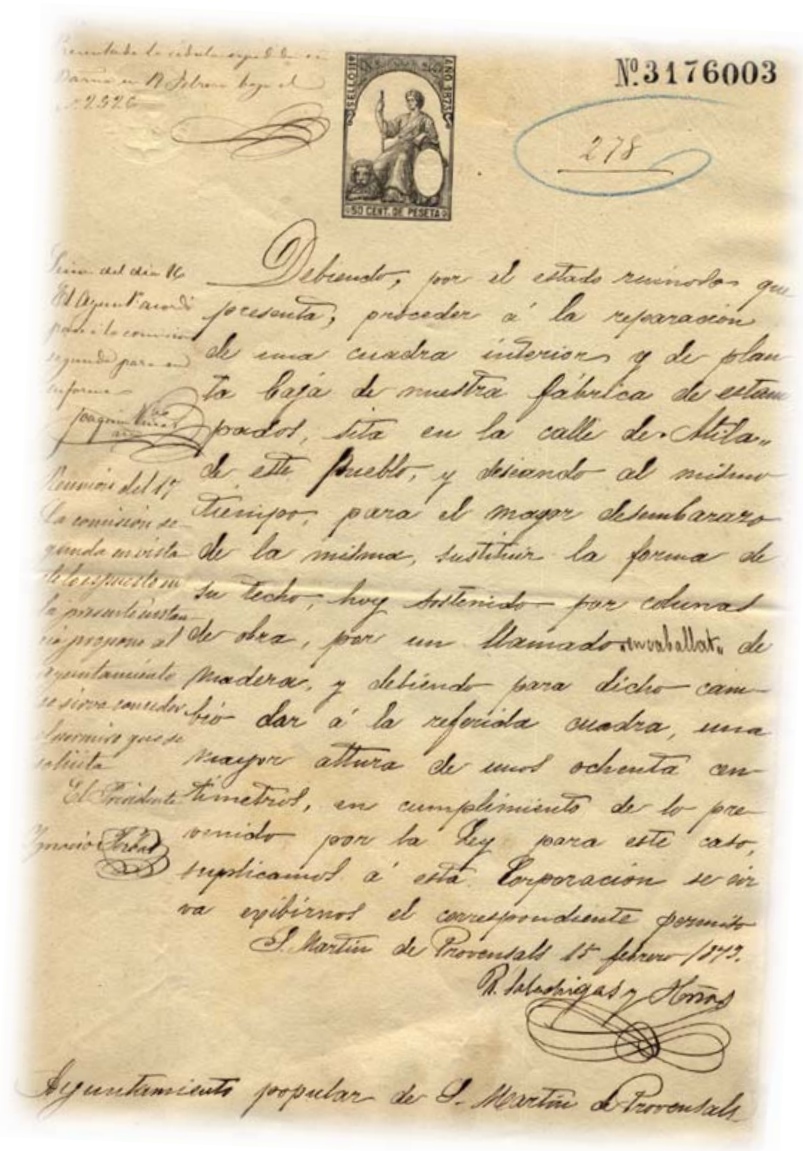 Presentada la cédula expedida en
Barna en 12 Febrero bajo el
nº 2526
SELLO 11º
AÑO 1873
50 CENT. DE PESETA
Nº 3176003
278
Sesión del dia 16
El Ayunt.º acordó
pase á la comisión
segunda para su
informe
Joaquin
Reunión del 17
La comisión se-
gunda en vista
de lo espuesto en
la presente instan
cia propone al
ayuntamiento
se sirva conceder
el permiso que se
solicita
El Presidente
Ignacio
Debiendo, por el estado ruinoso que
presenta, proceder á la reparación
de una cuadra interior y de plan
ta baja de nuestra fábrica de estam
pados, sita en la calle de "Atila"
de este Pueblo, y deseando al mismo
tiempo, para el mayor desembarazo
de la misma, sustituir la forma de
su techo, hoy sostenido por colunas
de obra, por un llamado "encaballat" de
madera, y debiendo para dicho cam-
bio dar á la referida cuadra, una
mayor altura de unos ochenta cen-
tímetros, en cumplimiento de lo pre-
venido por la Ley para este caso,
suplicamos á esta Corporación se sir
va exibirnos el correspondiente permiso
S. Martin de Provensals 15 febrero 1873.
R. Saladrigas y Hnos
Ayuntamiento popular de S. Martin de Provensals